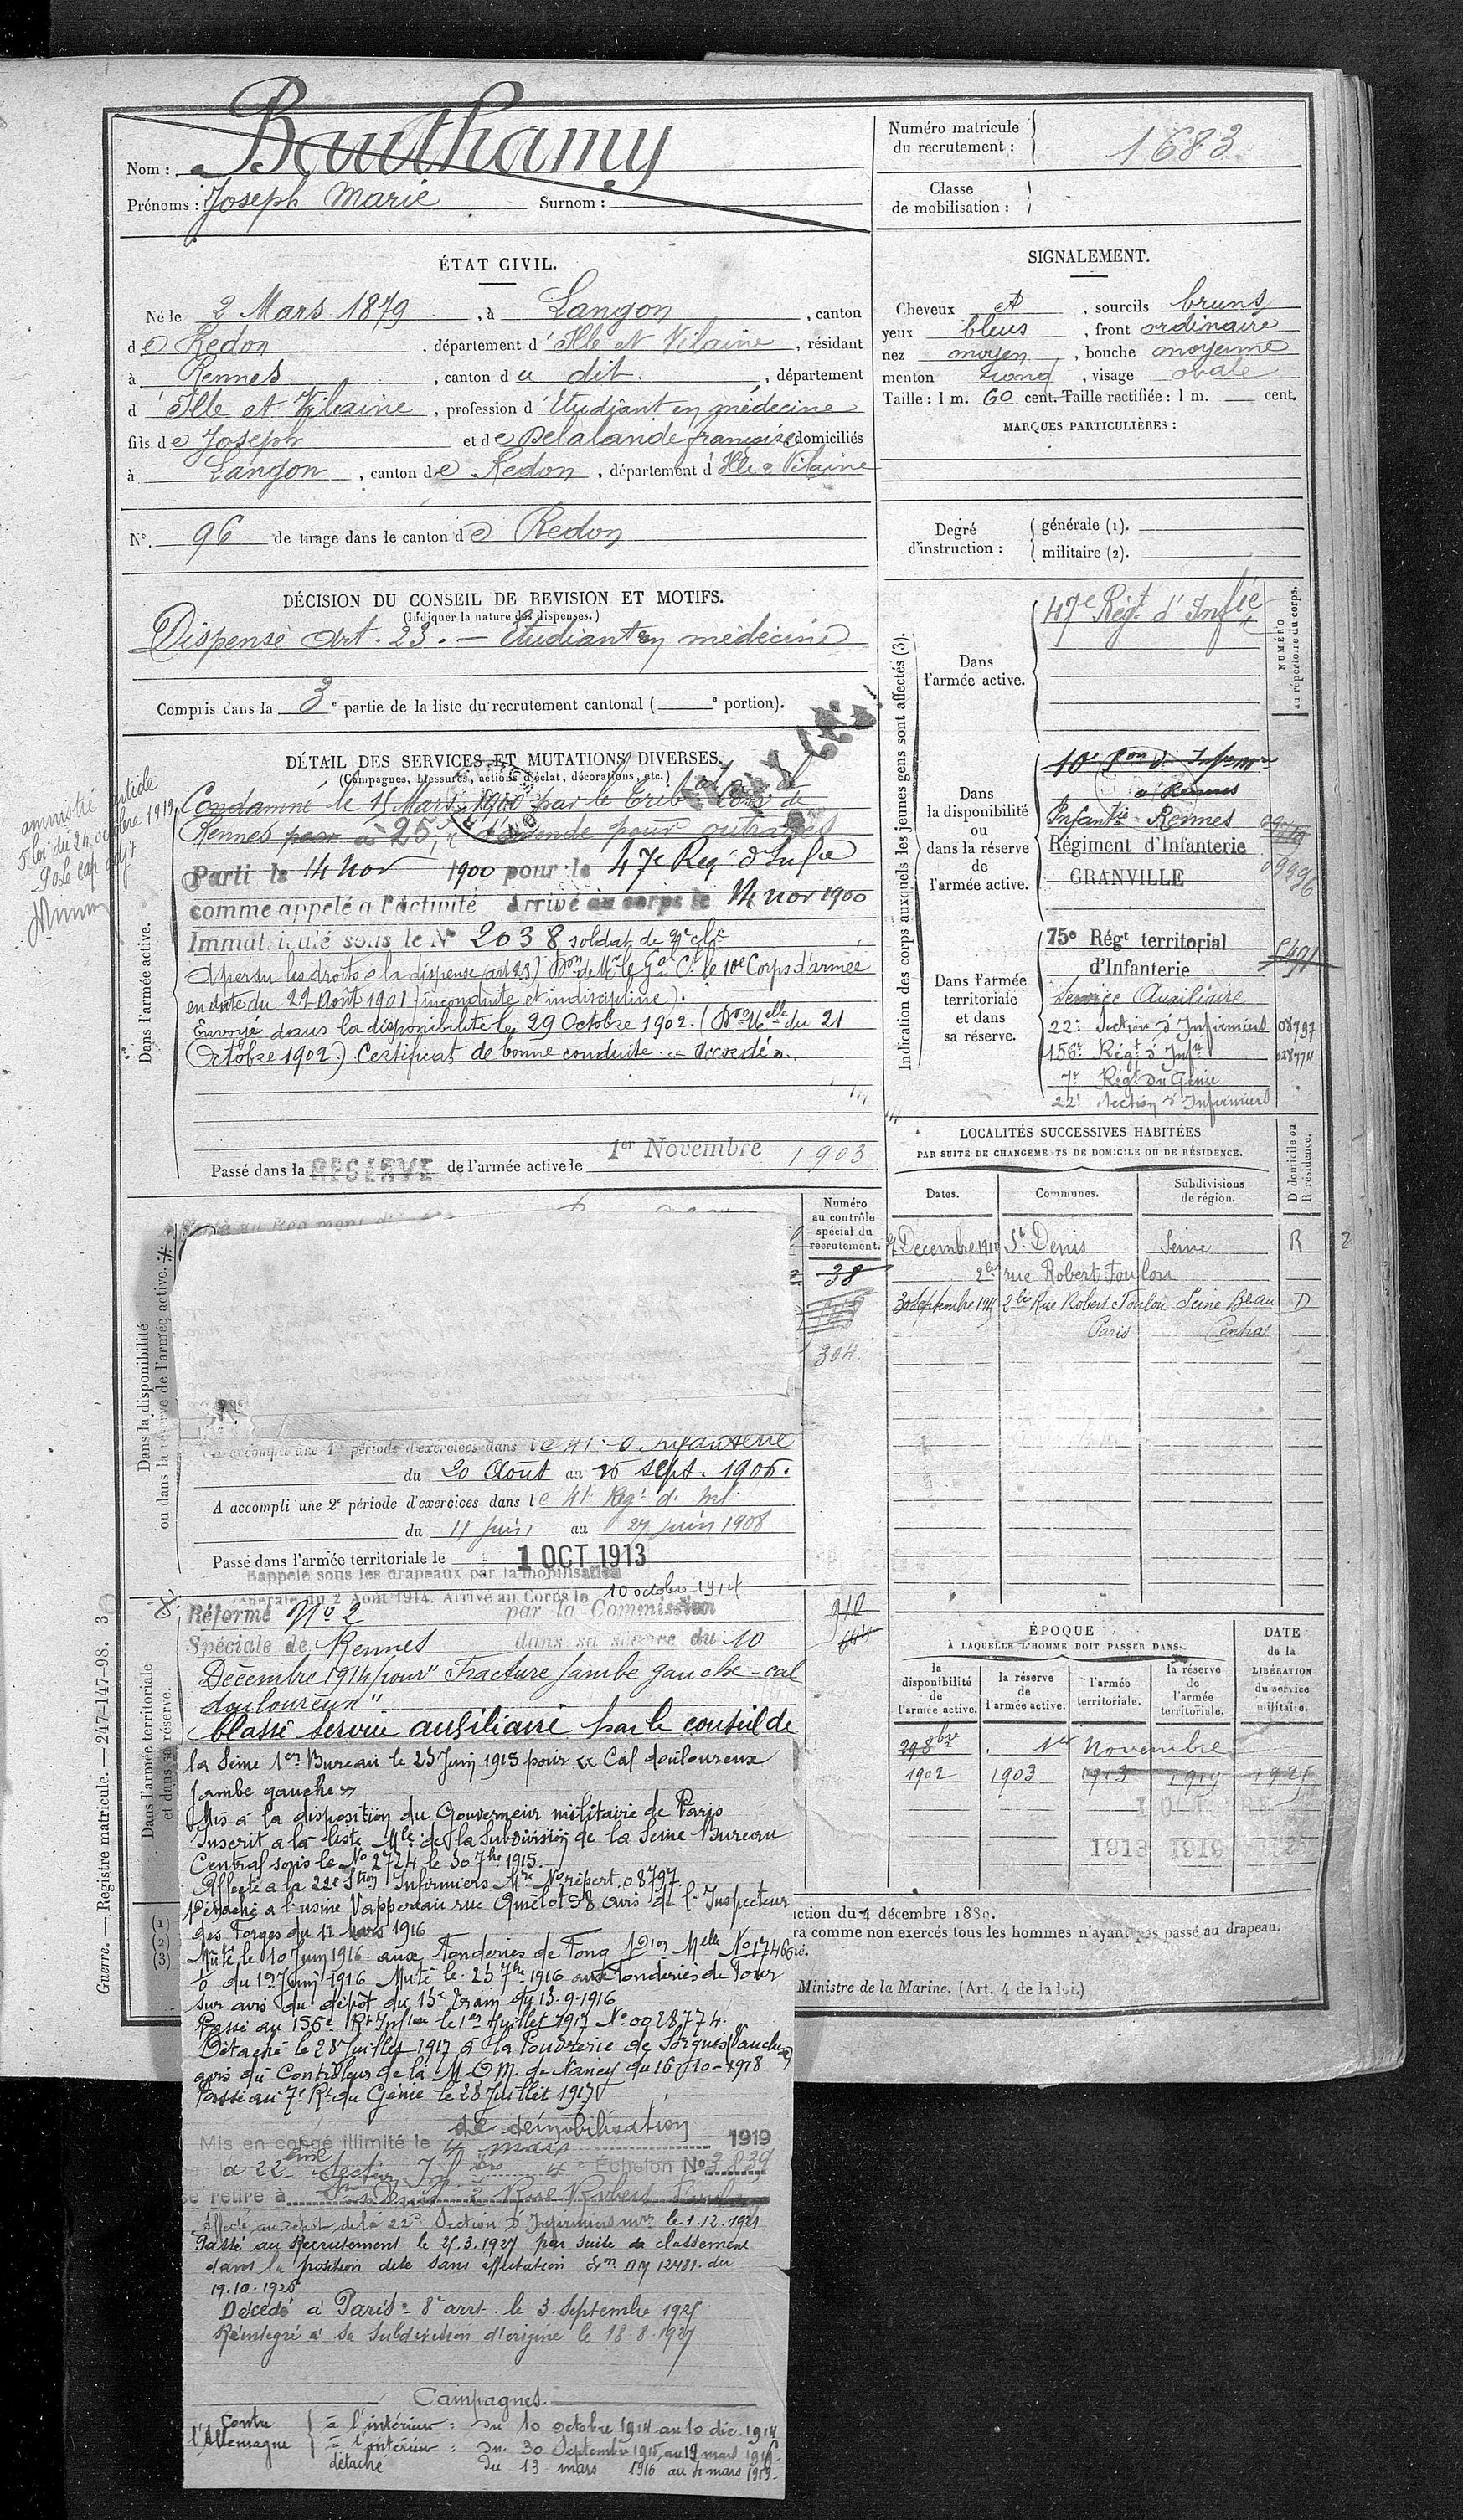 Nom : Bauthamy
Prénoms : Joseph Marie Surnom :
Numéro matricule du recrutement : 1683
Classe de mobilisation :
ÉTAT CIVIL.
Né le 2 Mars 1879, à Langon, canton
de Redon, département d'Ille et Vilaine, résidant
à Rennes, canton du dit, département
d'Ille et Vilaine, profession d'Etudiant en médecine
fils de Joseph et de Delalande françoise domiciliés
à Langon, canton de Redon, département d'Ille & Vilaine
N° 96 de tirage dans le canton de Redon
SIGNALEMENT.
Cheveux et, sourcils bruns
yeux bleus, front ordinaire
nez moyen, bouche moyenne
menton rond, visage ovale
Taille : 1 m. 60 cent. Taille rectifiée : 1 m. cent.
MARQUES PARTICULIÈRES :
Degré d'instruction : générale (1).
militaire (2).
DÉCISION DU CONSEIL DE REVISION ET MOTIFS.
(Indiquer la nature des dispenses.)
Dispensé Art. 23. — Etudiant en médecine
Compris dans la 3e partie de la liste du recrutement cantonal ( e portion).
DÉTAIL DES SERVICES ET MUTATIONS DIVERSES.
(Campagnes, blessures, actions d'éclat, décorations, etc.)
amnistié article
5 loi du 24 octobre 1919
Dans l'armée active.
Condamné le 15 Mars 1900 par le Trib al Corr de
Rennes à 25 f d'amende pour outrages
Parti le 14 nov 1900 pour le 47e Reg. d'Infie
comme appelé à l'activité Arrivé au corps le 14 nov 1900
Immatriculé sous le N° 2038 soldat de 2e cle
A perdu les droits à la dispense (art 23) Don de Mr le Gal Ct le 10e Corps d'armée
en date du 22 Août 1901 (inconduite et indiscipline).
Envoyé dans la disponibilité le 29 Octobre 1902. (Don Melle du 21
Octobre 1902.) Certificat de bonne conduite "Accordé".
Passé dans la RÉSERVE de l'armée active le 1er Novembre 1903
Indication des corps auxquels les jeunes gens sont affectés (3).
NUMÉRO au répertoire du corps.
Dans l'armée active.
47e Régt d'Infie
Dans la disponibilité ou dans la réserve de l'armée active.
à Rennes
Infantie Rennes
Régiment d'Infanterie
GRANVILLE
Dans l'armée territoriale et dans sa réserve.
75e Régt territorial
d'Infanterie
Service Auxiliaire
22e Section d'Infirmiers 08797
156e Régt d'Infie 028774
7e Régt du Génie
22e Section d'Infirmiers
LOCALITÉS SUCCESSIVES HABITÉES
PAR SUITE DE CHANGEMENTS DE DOMICILE OU DE RÉSIDENCE.
Dates. Communes. Subdivisions de région. D domicile ou R résidence.
Décembre 1910 St Denis Seine R
2bis rue Robert Foulon
30 Septembre 1915 2bis Rue Robert Foulon Seine Beau D
Paris Central
Numéro au contrôle spécial du recrutement.
38
304
Dans la disponibilité
ou dans la réserve de l'armée active.
A accompli une 1re période d'exercices dans le 41e d'Infanterie
du 20 Août au sept. 1906.
A accompli une 2e période d'exercices dans le 41e Régt d'Inf.
du 11 juin au 27 juin 1908
Passé dans l'armée territoriale le 1 OCT 1913
Rappelé sous les drapeaux par la mobilisation
générale du 2 Août 1914. Arrivé au Corps le 10 octobre 1914
Dans l'armée territoriale
et dans sa réserve.
Réformé No 2 par la Commission
Spéciale de Rennes dans sa séance du 10
Décembre 1914 pour "Fracture jambe gauche - cal
douloureux"
Classé service auxiliaire par le conseil de
la Seine 1er Bureau le 23 Juin 1915 pour "Cal douloureux
jambe gauche"
Mis à la disposition du Gouverneur militaire de Paris
Inscrit à la liste Mle de la Subdivision de la Seine Bureau
Central sous le No 2724 le 30 7bre 1915.
Affecté à la 22e Ston Infirmiers Mre No répert. 08797
Détaché à l'usine Vappereau rue avis de l'Inspecteur
des Forges du 12 mars 1916
Muté le 10 Juin 1916 aux Fonderies de Melle No 17466
du 1er Juin 1916 Muté le 25 7bre 1916 aux Fonderies de
sur avis du dépôt du 13e Train du 13-9-1916
Passé au 156e Rt Infie le 1er Juillet 1917 No 0028774.
Détaché le 28 Juillet 1917 à la Poudrerie de Sorgues (Vaucluse)
avis du Contrôleur de la M.O.M. de Nancy du 16-10-1918
Passé au 7e Rt du Génie le 28 Juillet 1917
Mis en congé illimité de démobilisation le 4 mars 1919
22e Section Inf 4e Échelon No 3839
se retire à St Denis 2 Rue Robert
Affecté au dépôt de la 22e Section d'Infirmiers mres le 1.12.1921
Passé au Recrutement le 25.3.1927 par suite de classement
dans la position dite sans affectation DM 12481. du
19.10.1926
Décédé à Paris 8e arrt. le 3 Septembre 1925
Réintégré à sa subdivision d'origine le 18-8-1927
Campagnes.
Contre l'Allemagne
à l'intérieur : du 10 octobre 1914 au 10 déc. 1914
à l'intérieur : du 30 Septembre 1915 au 12 mars 1916
détaché du 13 mars 1916 au 4 mars 1919
ÉPOQUE
À LAQUELLE L'HOMME DOIT PASSER DANS
la disponibilité de l'armée active. la réserve de l'armée active. l'armée territoriale. la réserve de l'armée territoriale.
DATE de la LIBÉRATION du service militaire.
29 8bre 1er Novembre
1902 1903 1913 1919
ction du 4 décembre 1889.
ra comme non exercés tous les hommes n'ayant pas passé au drapeau.
Ministre de la Marine. (Art. 4 de la loi.)
(1)
(2)
(3)
Guerre. — Registre matricule. — 247-147-98. 3